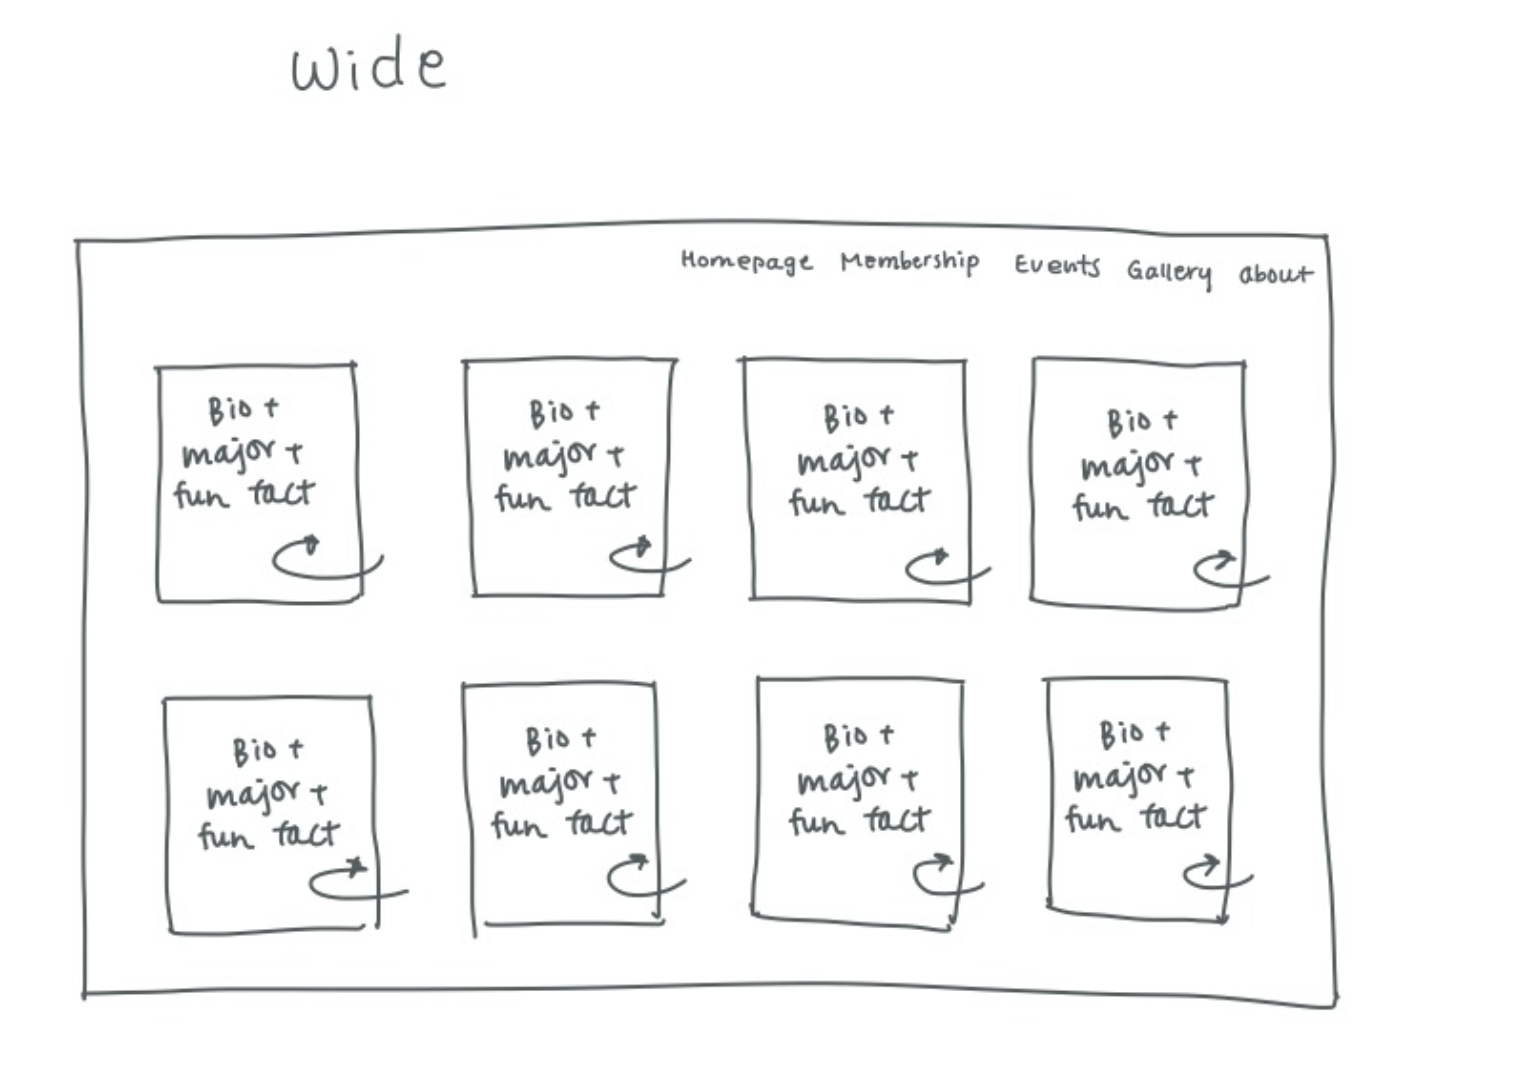 Wide
Homepage Membership Events Gallery about
Bio +
major +
fun fact
Bio +
major +
fun fact
Bio +
major +
fun fact
Bio +
major +
fun fact
Bio +
major +
fun fact
Bio +
major +
fun fact
Bio +
major +
fun fact
Bio +
major +
fun fact